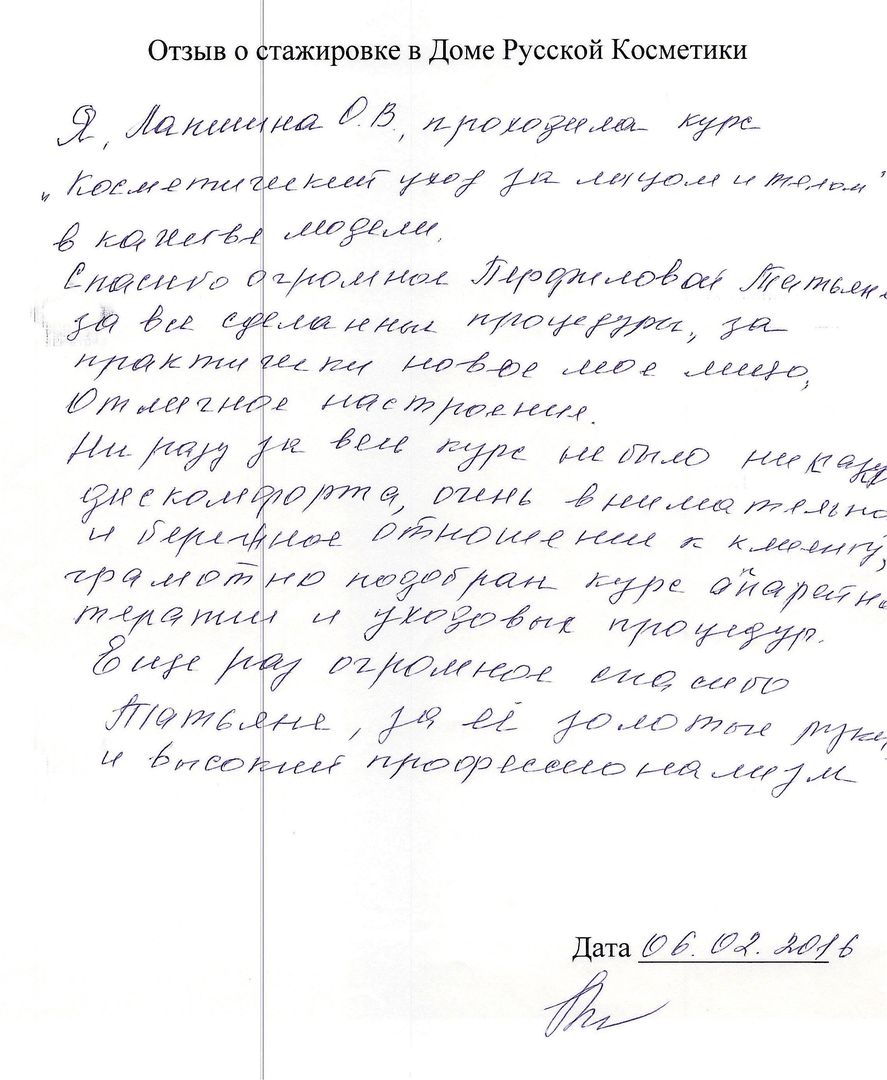 Отзыв о стажировке в Доме Русской Косметики
Я, Лапшина О.В., проходила курс
"Косметический уход за лицом и телом"
в качестве модели.
Спасибо огромное Перфиловой Татьяне
за все сделанные процедуры, за
практически новое мое лицо,
отличное настроение.
Ни разу за весь курс не было ни разу
дискомфорта, очень внимательно
и бережное отношение к клиенту,
грамотно подобран курс апаратн
терапии и уходовых процедур.
Еще раз огромное спасибо
Татьяне, за её золотые руки,
и высокий профессионализм
Дата 06.02.2016